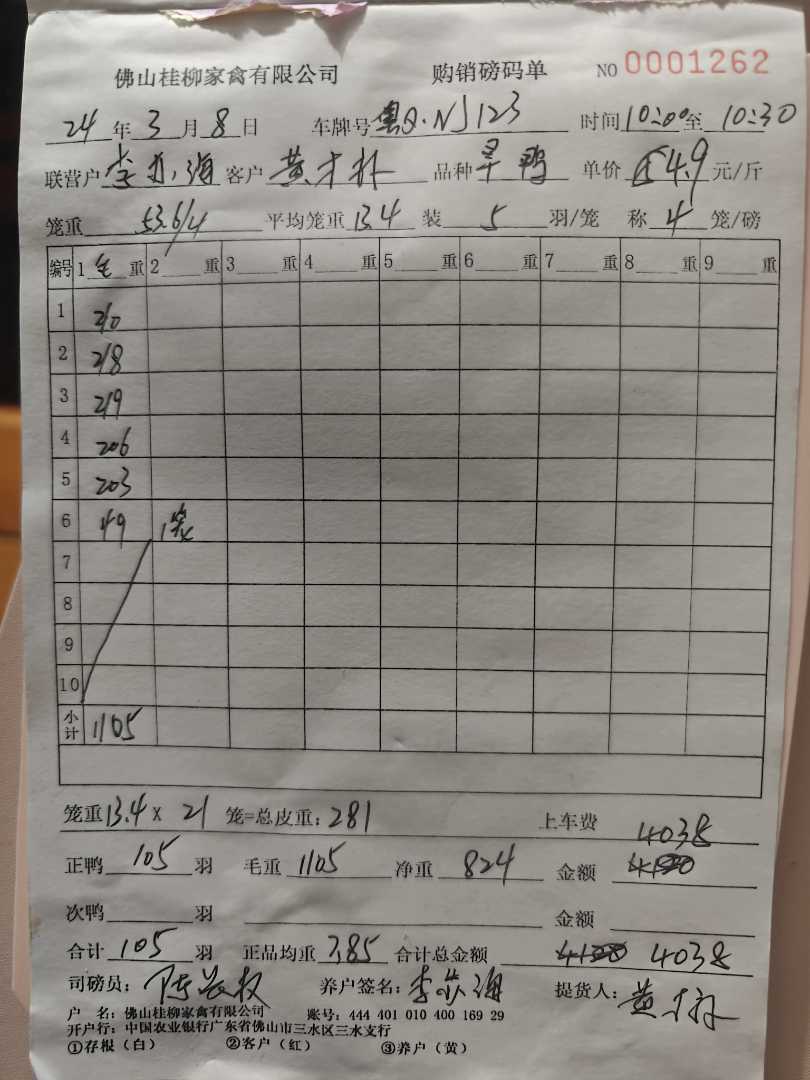 佛山桂柳家禽有限公司 购销磅码单 NO 0001262
24 年 3 月 8 日 车牌号 粤Q·NJ123 时间 10:00 至 10:30
联营户 李 海 客户 黄才 品种 旱鸭 单价 4.9 元/斤
笼重 53.6/4 平均笼重 13.4 装 5 羽/笼 称 4 笼/磅
编号 1 毛 重 2 重 3 重 4 重 5 重 6 重 7 重 8 重 9 重
1 210
2 218
3 219
4 206
5 203
6 49 1笼
7
8
9
10
小计 1105
笼重 13.4 X 21 笼=总皮重: 281 上车费
正鸭 105 羽 毛重 1105 净重 824 金额 4038
次鸭 羽 金额
合计 105 羽 正品均重 7.85 合计总金额 4038
司磅员: 陈 权 养户签名: 李 海 提货人: 黄才
户 名: 佛山桂柳家禽有限公司 账号: 444 401 010 400 169 29
开户行: 中国农业银行广东省佛山市三水区三水支行
①存根(白) ②客户(红) ③养户(黄)